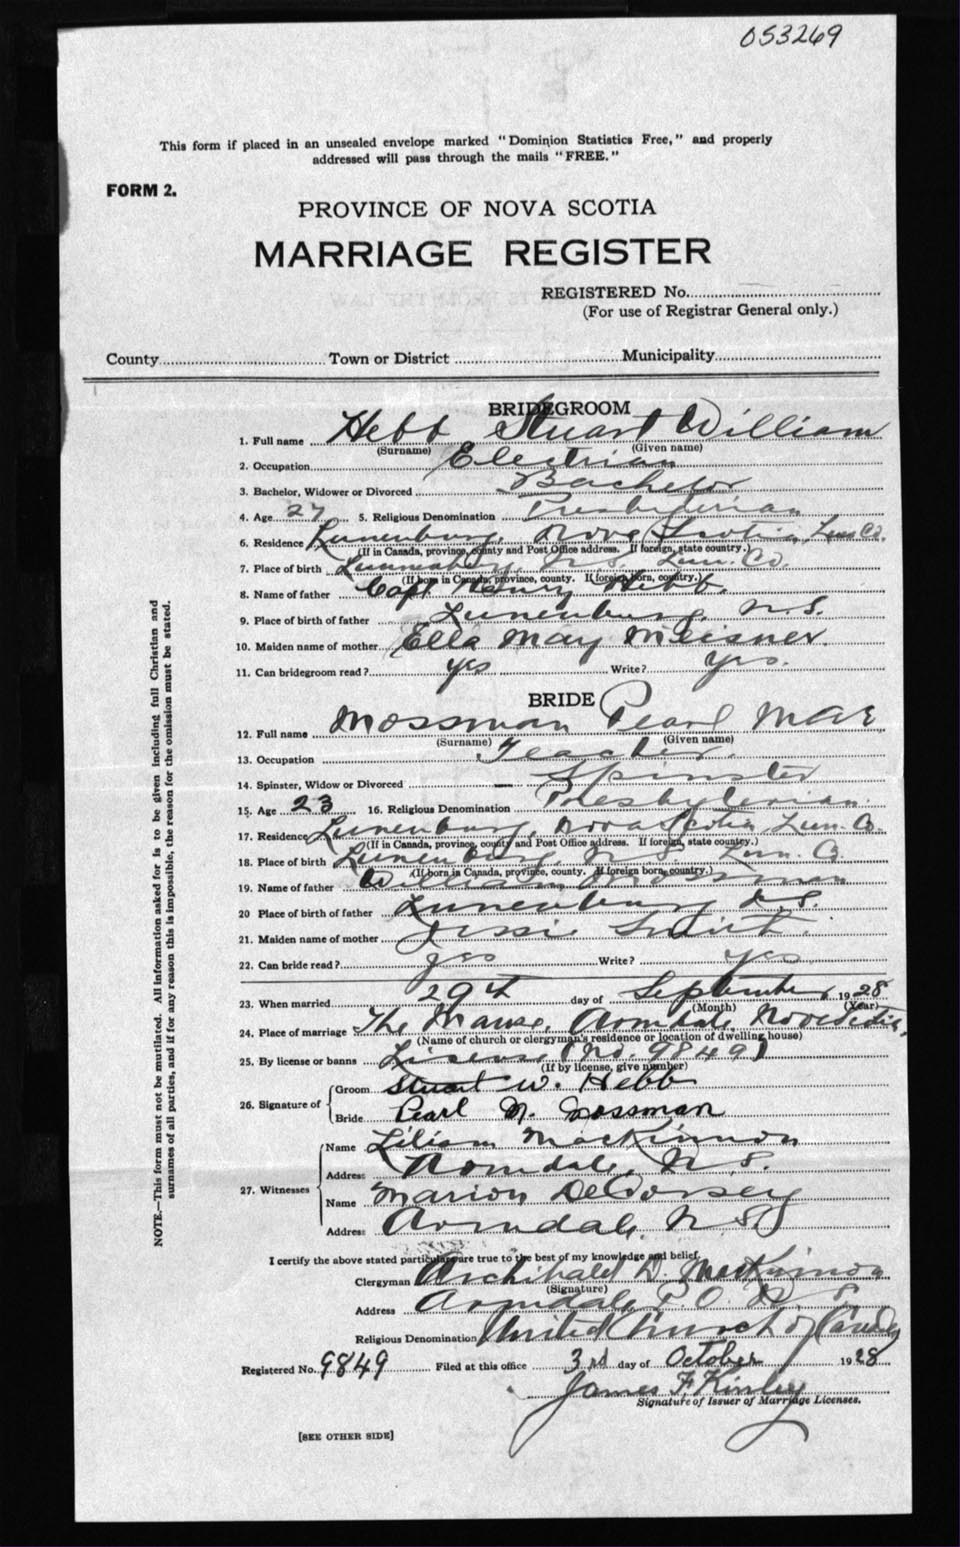 053269
This form if placed in an unsealed envelope marked "Dominion Statistics Free," and properly
addressed will pass through the mails "FREE."
FORM 2.
PROVINCE OF NOVA SCOTIA
MARRIAGE REGISTER
REGISTERED No.
(For use of Registrar General only.)
County Town or District Municipality
BRIDEGROOM
1. Full name Hebb Stuart William
(Surname) (Given name)
2. Occupation Electrian
3. Bachelor, Widower or Divorced Bachelor
4. Age 27 5. Religious Denomination Presbyterian
6. Residence Lunenburg, Nova Scotia, Lun. Co.
(If in Canada, province, county and Post Office address. If foreign, state country.)
7. Place of birth Lunenburg N.S. Lun. Co.
(If born in Canada, province, county. If foreign born, country.)
8. Name of father Capt Henry Hebb.
9. Place of birth of father Lunenburg, N.S.
10. Maiden name of mother Ella May Meisner.
11. Can bridegroom read? yes Write? yes.
BRIDE
12. Full name Mossman Pearl Mae
(Surname) (Given name)
13. Occupation Teacher.
14. Spinster, Widow or Divorced Spinster
15. Age 23 16. Religious Denomination Presbyterian.
17. Residence Lunenburg, Nova Scotia, Lun. Co.
(If in Canada, province, county and Post Office address. If foreign, state country.)
18. Place of birth Lunenburg N.S. Lun. Co.
(If born in Canada, province, county. If foreign born, country.)
19. Name of father William Mossman
20 Place of birth of father Lunenburg N.S.
21. Maiden name of mother Jessie
22. Can bride read? yes Write? yes
23. When married 29th day of September, 1928
(Month) (Year)
24. Place of marriage The Manse, Armdale, Nova Scotia,
(Name of church or clergyman's residence or location of dwelling house)
25. By license or banns License (No. 9849)
(If by license, give number)
26. Signature of Groom Stuart W. Hebb
Bride Pearl M. Mossman
27. Witnesses Name Lilian MacKinnon
Address Armdale, N.S.
Name Marion DeDorsey
Address Armdale, N.S.
I certify the above stated particulars are true to the best of my knowledge and belief.
Clergyman Archibald D. MacKinnon
(Signature)
Address Armdale P.O. N.S.
Religious Denomination United Church of Canada
Registered No. 9849 Filed at this office 3rd day of October 1928
James F. Kinley
Signature of Issuer of Marriage Licenses.
[SEE OTHER SIDE]
NOTE.—This form must not be mutilated. All information asked for is to be given including full Christian and
surnames of all parties, and if for any reason this is impossible, the reason for the omission must be stated.